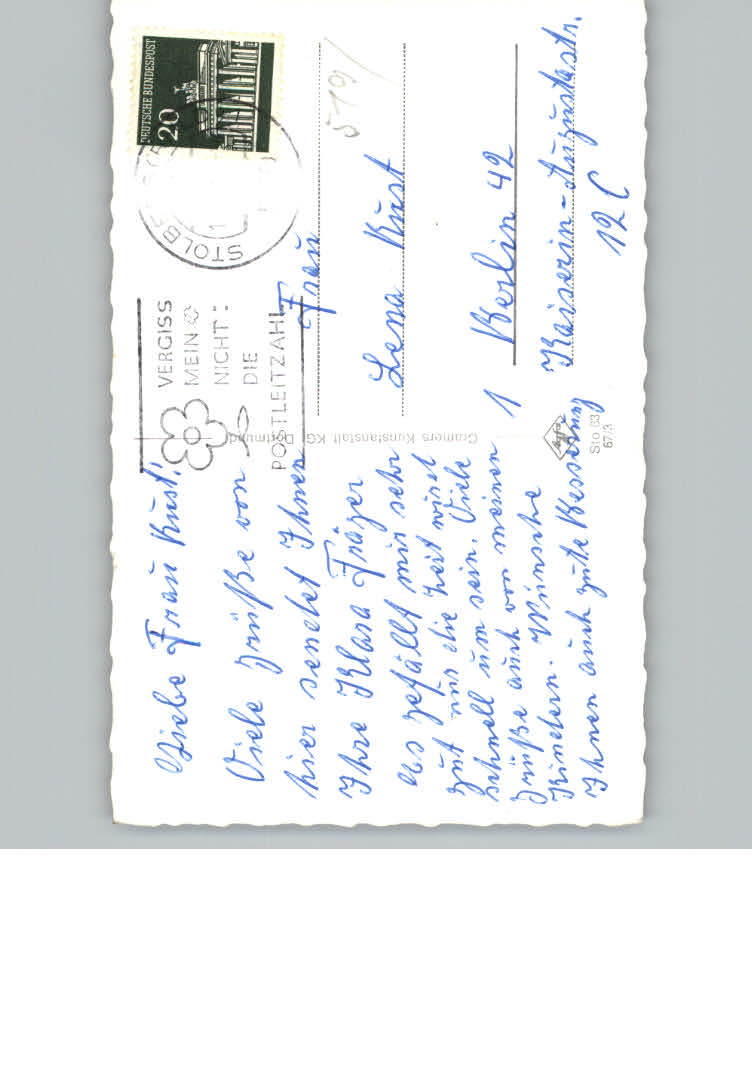 Liebe Frau Kust!
Viele Grüße von
hier sendet Ihnen
Ihre Klara Fräger
es gefällt mir sehr
gut nur die Zeit wird
schnell um sein. Viele
Grüße auch von meinen
Kindern. Wünsche
Ihnen auch gute Besserung
Cramers Kunstanstalt KG Dortmund
Sto 63
67/3
VERGISS
MEIN
NICHT:
DIE
POSTLEITZAHL
STOLBERG
DEUTSCHE BUNDESPOST
20
519/
Frau
Lena Kust
1 Berlin 42
Kaiserin-Augustastr.
12 C